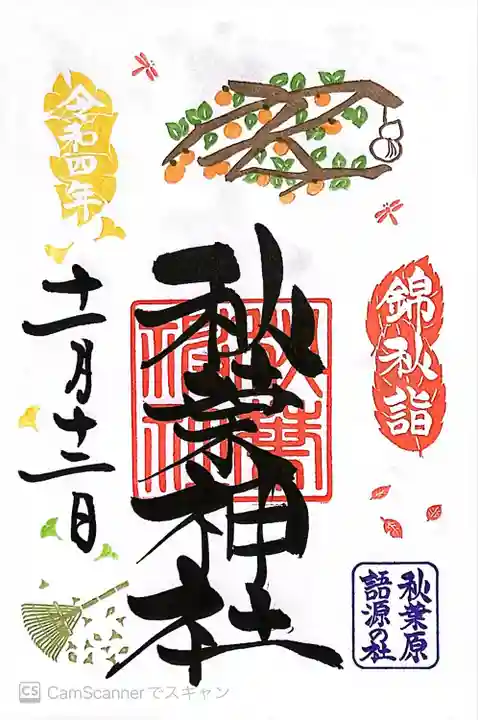 錦秋詣
秋葉原
語源の社
秋葉神社
令和四年
十一月十二日
CS CamScannerでスキャン